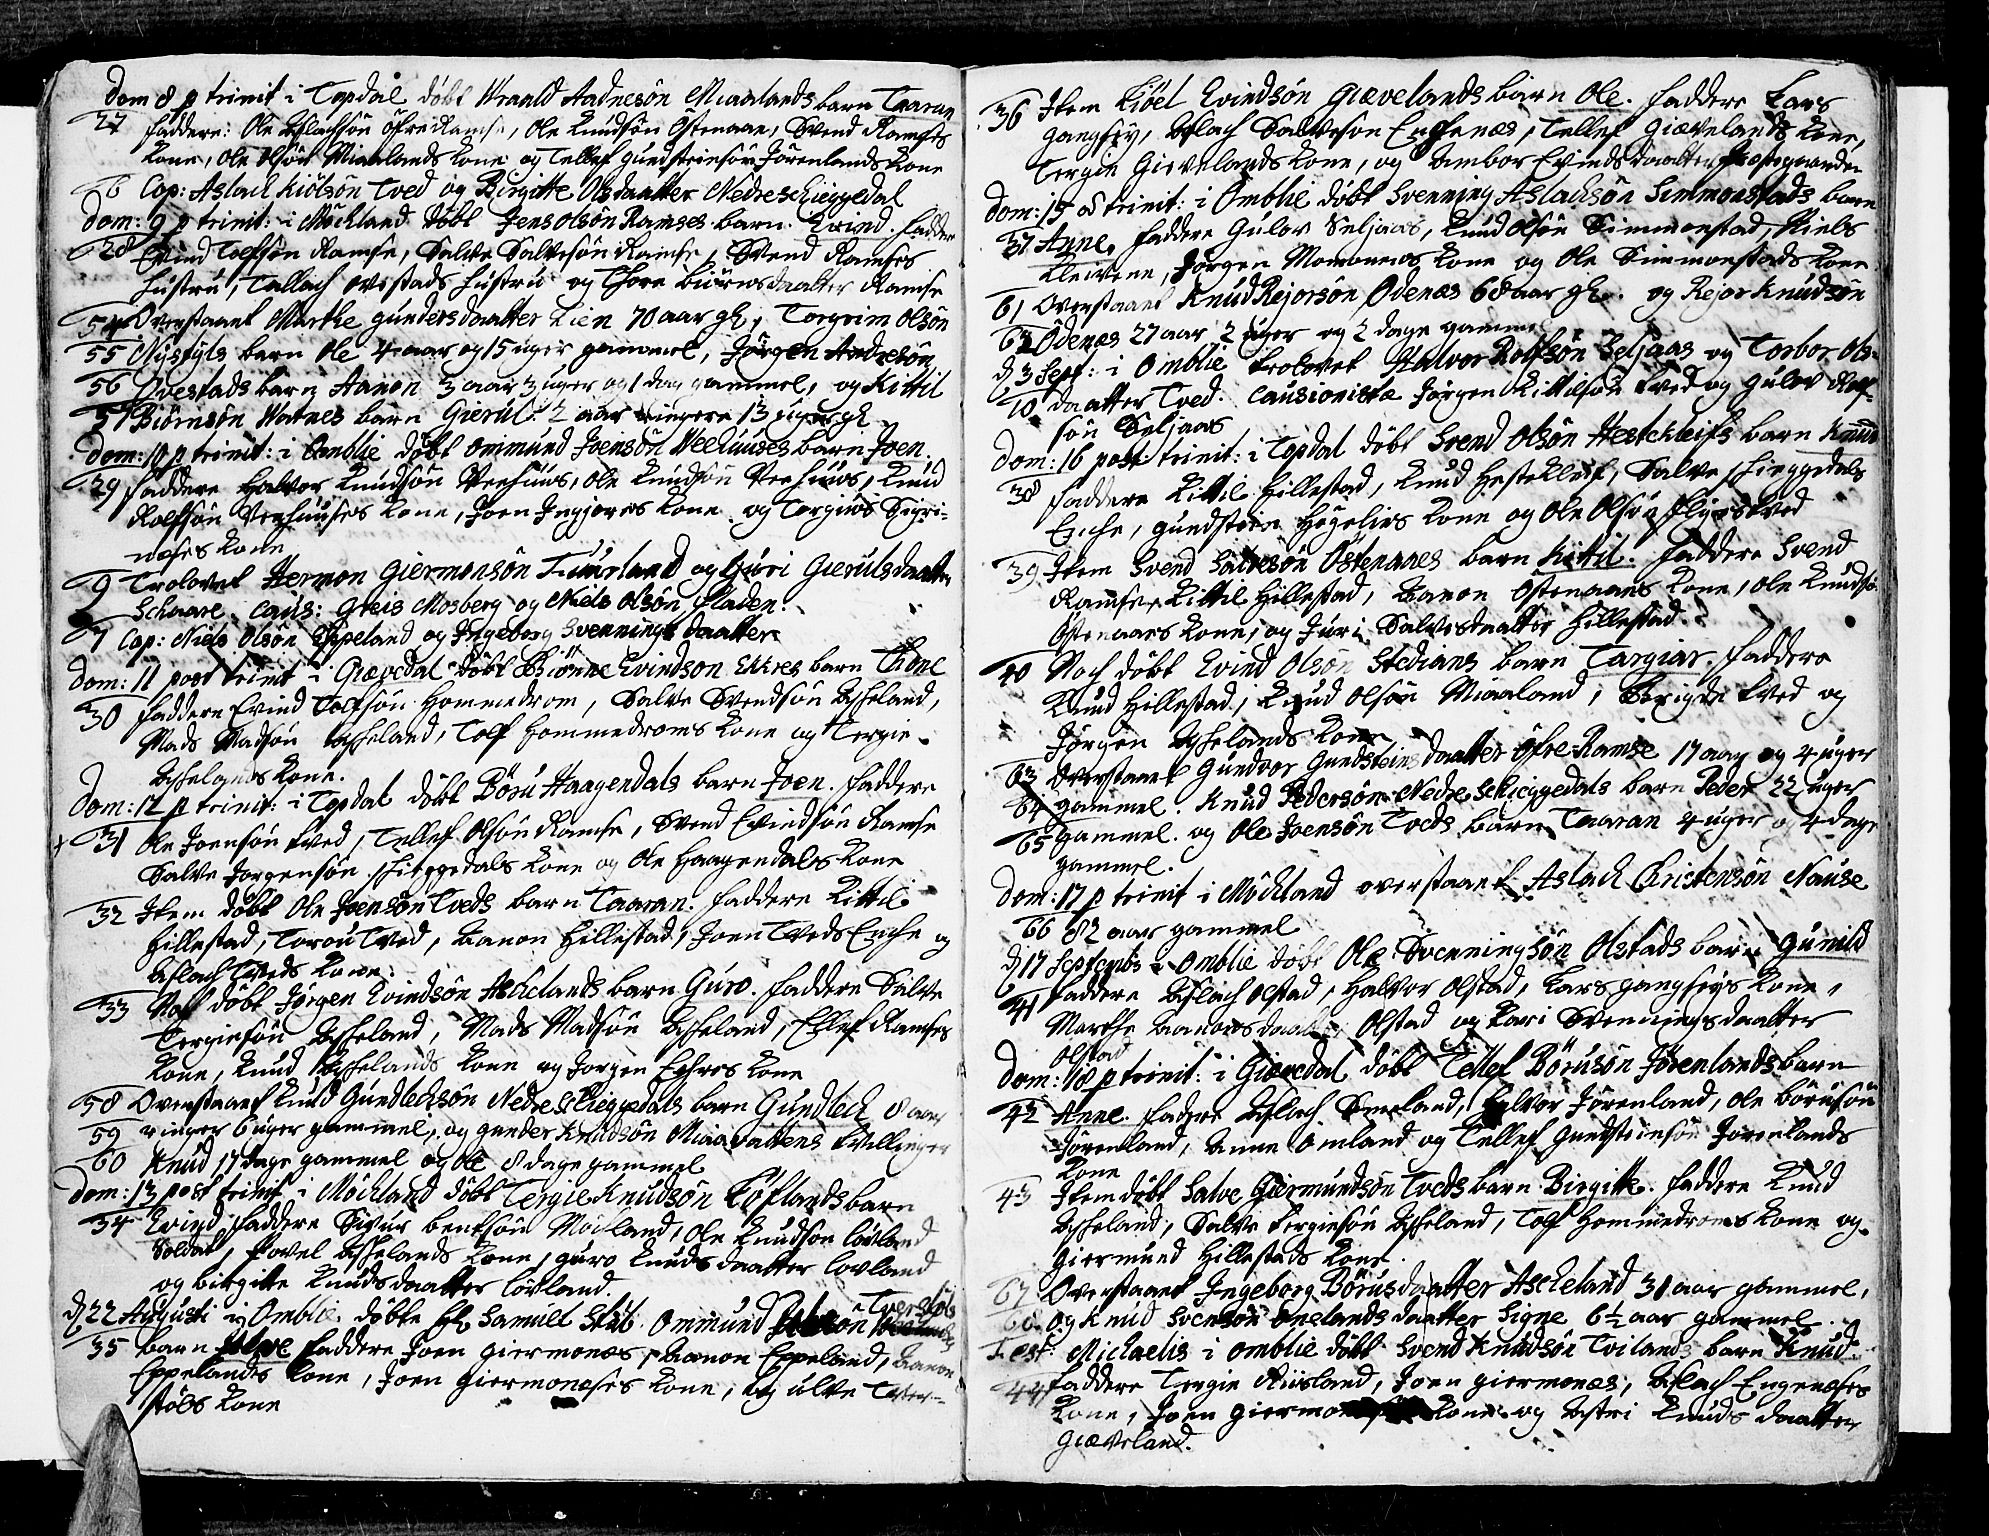 Dom 8 p trinit i Topdal döbt Wraald Aadnesön Miaalands barn Taaran
27 faddere: Ole Aslachsön öfre Ramse, Ole Knudsön Ostenaae, Svend Ramses
Kone, Ole Olsön Miaalands Kone og Tellef Gundsteinsön Jörenlands Kone
6 Cop: Aslach Kiölsön Tved og Birgitte Olsdaatter Nedre Schieggedal
Dom: 9 p trinit: i Möckland döbt Jens Olsön Ramses barn Evind. faddere
28 Evind Tolfsön Ramse, Salve Salvesön Ramse, Svend Ramses
hustru, Tallach Ovestads hustru og Thore Biörnsdaatter Ramse
54 Overstaaet Marthe Gundersdaatter Lien 70 aar gl, Torgrim Olsön
55 Nystöls barn Ole 4 aar og 15 uger gammel, Jörgen Andersön
56 Ovestads barn Aanon 3 aar 3 uger og 1 dag gammel, og Kittil
57 Biörnsön Watnes barn Gierul 2 aar ringere 13 uger gl
Dom: 10 p trinit: i Omblie döbt Ommund Joensön Weehuuses barn Joen.
29 faddere Halvor Knudsön Veehuus, Ole Knudsön Veehuus, Knud
Rolfsön Veehuuses Kone, Joen Ingjores Kone og Torgius Sigri-
næses Kone
9 Trolovet Hermon Giermonsön Fuurland og Guri Gierulsdaatter
Schaare. caus: Greis Mosberg og Niels Olsön Fladen.
7 Cop: Niels Olsön Eppeland og Ingeborg Svennings daatter
Dom: 11 post trinit i Giævedal döbt Biönne Evindson Ekres barn Thone
30 faddere Evind Tolfsön Hommedrom, Salve Svendsön Askeland,
Mads Madsön Askeland, Tolf Hommedroms Kone og Tergie
Askelands Kone.
Dom: 12 p trinit: i Topdal döbt Börü Haagendals barn Joen. faddere
31 Ole Joensön Tved, Tellef Olsön Ramse, Svend Evindsön Ramse
Salve Jorgensön Schieggedals Kone og Ole Haagendals Kone
32 Item döbt Ole Joensön Tveds barn Taaran. faddere Kittil
Hillestad, Torou Tved, Aanon Hillestad, Joen Tveds Enche og
Aslach Tveds Kone.
33 Noch döbt Jörgen Evindsön Aschelands barn Guro. faddere Salve
Tergiesön Askeland, Mads Madsön Askeland, Ellef Ramses
Kone, Knud Askelands Kone og Jorgen Echres Kone
58 Overstaaet Knud Gundlechsön Nedre Schieggedals barn Gundlech 8 aar
59 ringer 6 uger gammel, og Gunder Knudsön Miaavattens tvillinger
60 Knud 17 dage gammel og Ole 8 dage gammel
Dom: 13 post trinit i Möchland döbt Tergie Knudsön Löflands barn
34 Evind faddere Sivur Bentsön Mockland, Ole Knudsön Lövland
Soldat, Povel Askelands Kone, Guro Knuds daatter Lovland
og Birgitte Knudsdaatter Lövland.
d 22 Augusti i Omblie döbte Hr Samuel Ommund Tverstöls
35 barn faddere Joen Giermones, Aanon Eppeland, Aanon
Eppelands Kone, Joen Giermoneses Kone, og Ulve Tver-
stöls Kone
36 Item Kiöel Evindsön Giævelands barn Ole. faddere Lars
Gangsöy, Aslach Salveson Engenæs, Tellef Giævelands Kone,
Tergie Gievelands Kone, og Ambor Evinds daatter
Dom: 15 p trinit: i Omblie döbt Svenning Aslachsön Simmonstads barn
37 Anne. faddere Gulov Seljaas, Knud Olsön Simmonstad, Niels
Kleivene, Jörgen Momones Kone og Ole Simmonstads Kone
61 Overstaaet Knud Rejorsön Ødenæs 68 aar gl. og Rejor Knudsön
62 Ødenæs 27 aar 2 uger og 2 dage gammel
d 3 Sept: i Omblie trolovet Halvor Rolfsön Seljaas og Torbor Ols-
10 daatter Tved. Causionistæ Jörgen Kittilsön Tved og Gulov Rolf-
sön Seljaas
Dom: 16 post trinit: i Topdal döbt Svend Olsön Hestekleifs barn Knud
38 faddere Kittil Hillestad, Knud Hestekleif, Salve Schieggedals
Enche, Gundstein Högelies Kone og Ole Olsön
39 Item Svend Salvesön Ostenaaes barn Kittil. faddere Svend
Ramse, Kittil Hillestad, Aanon Ostenaaes Kone, Ole Knudsön
Ostenaaes Kone, og Juri Salvesdaatter Hillestad.
40 Noch döbt Evind Olsön Stedians barn Targier. faddere
Knud Hillestad, Knud Olsön Miaaland, Tved og
Jörgen Askelands Kone
63 Overstaaet Gundvor Gundsteins daatter öfre Ramse 17 aar og 4 uger
64 gammel. Knud Pedersön Nedre Schieggedals barn Peder 22 uger
65 gammel. og Ole Joensön Tveds barn Taaran 4 uger og 4 dage
gammel.
Dom: 17 p trinit i Möchland overstaaet Aslach Christensön Nause
66 82 aar gammel
d 17 Septembr i Omblie döbt Ole Svenningsön Olstads barn Gunild
41 faddere Aslach Olstad, Halvor Olstad, Lars Gangsöys Kone,
Marthe Aanons daatter Olstad og Kari Svenningsdaatter
Olstad
Dom: 18 p trinit: i Giævedal döbt Tellef Börusön Jörenlands barn
42 Anne. faddere Aslach Smeland, Halvor Jörenland, Ole Börusön
Jörenland, Anne Omland og Tellef Gundsteinsön Jorenlands
Kone
43 Item döbt Salve Giermundsön Tveds barn Birgitte. faddere Knud
Askeland, Salve Tergiesön Askeland, Tolf Hommedroms Kone og
Giermund Hillestads Kone.
67 Overstaaet Ingeborg Börusdaatter Ascheland 31 aar gammel,
68 og Knud Svensön Onelands daatter Signe 6½ aar gammel.
Fest. Michaelis i Omblie döbt Svend Knudsön Tvilands barn Knud.
44 faddere Tergie Riisland, Joen Giermones, Aslach Engenæses
Kone, Joen Kone og Astri Knuds daatter
Giæveland.